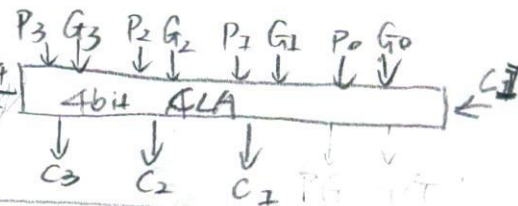 P3 G3 P2 G2 P1 G1 P0 G0
4bit CLA
C3 C2 C1